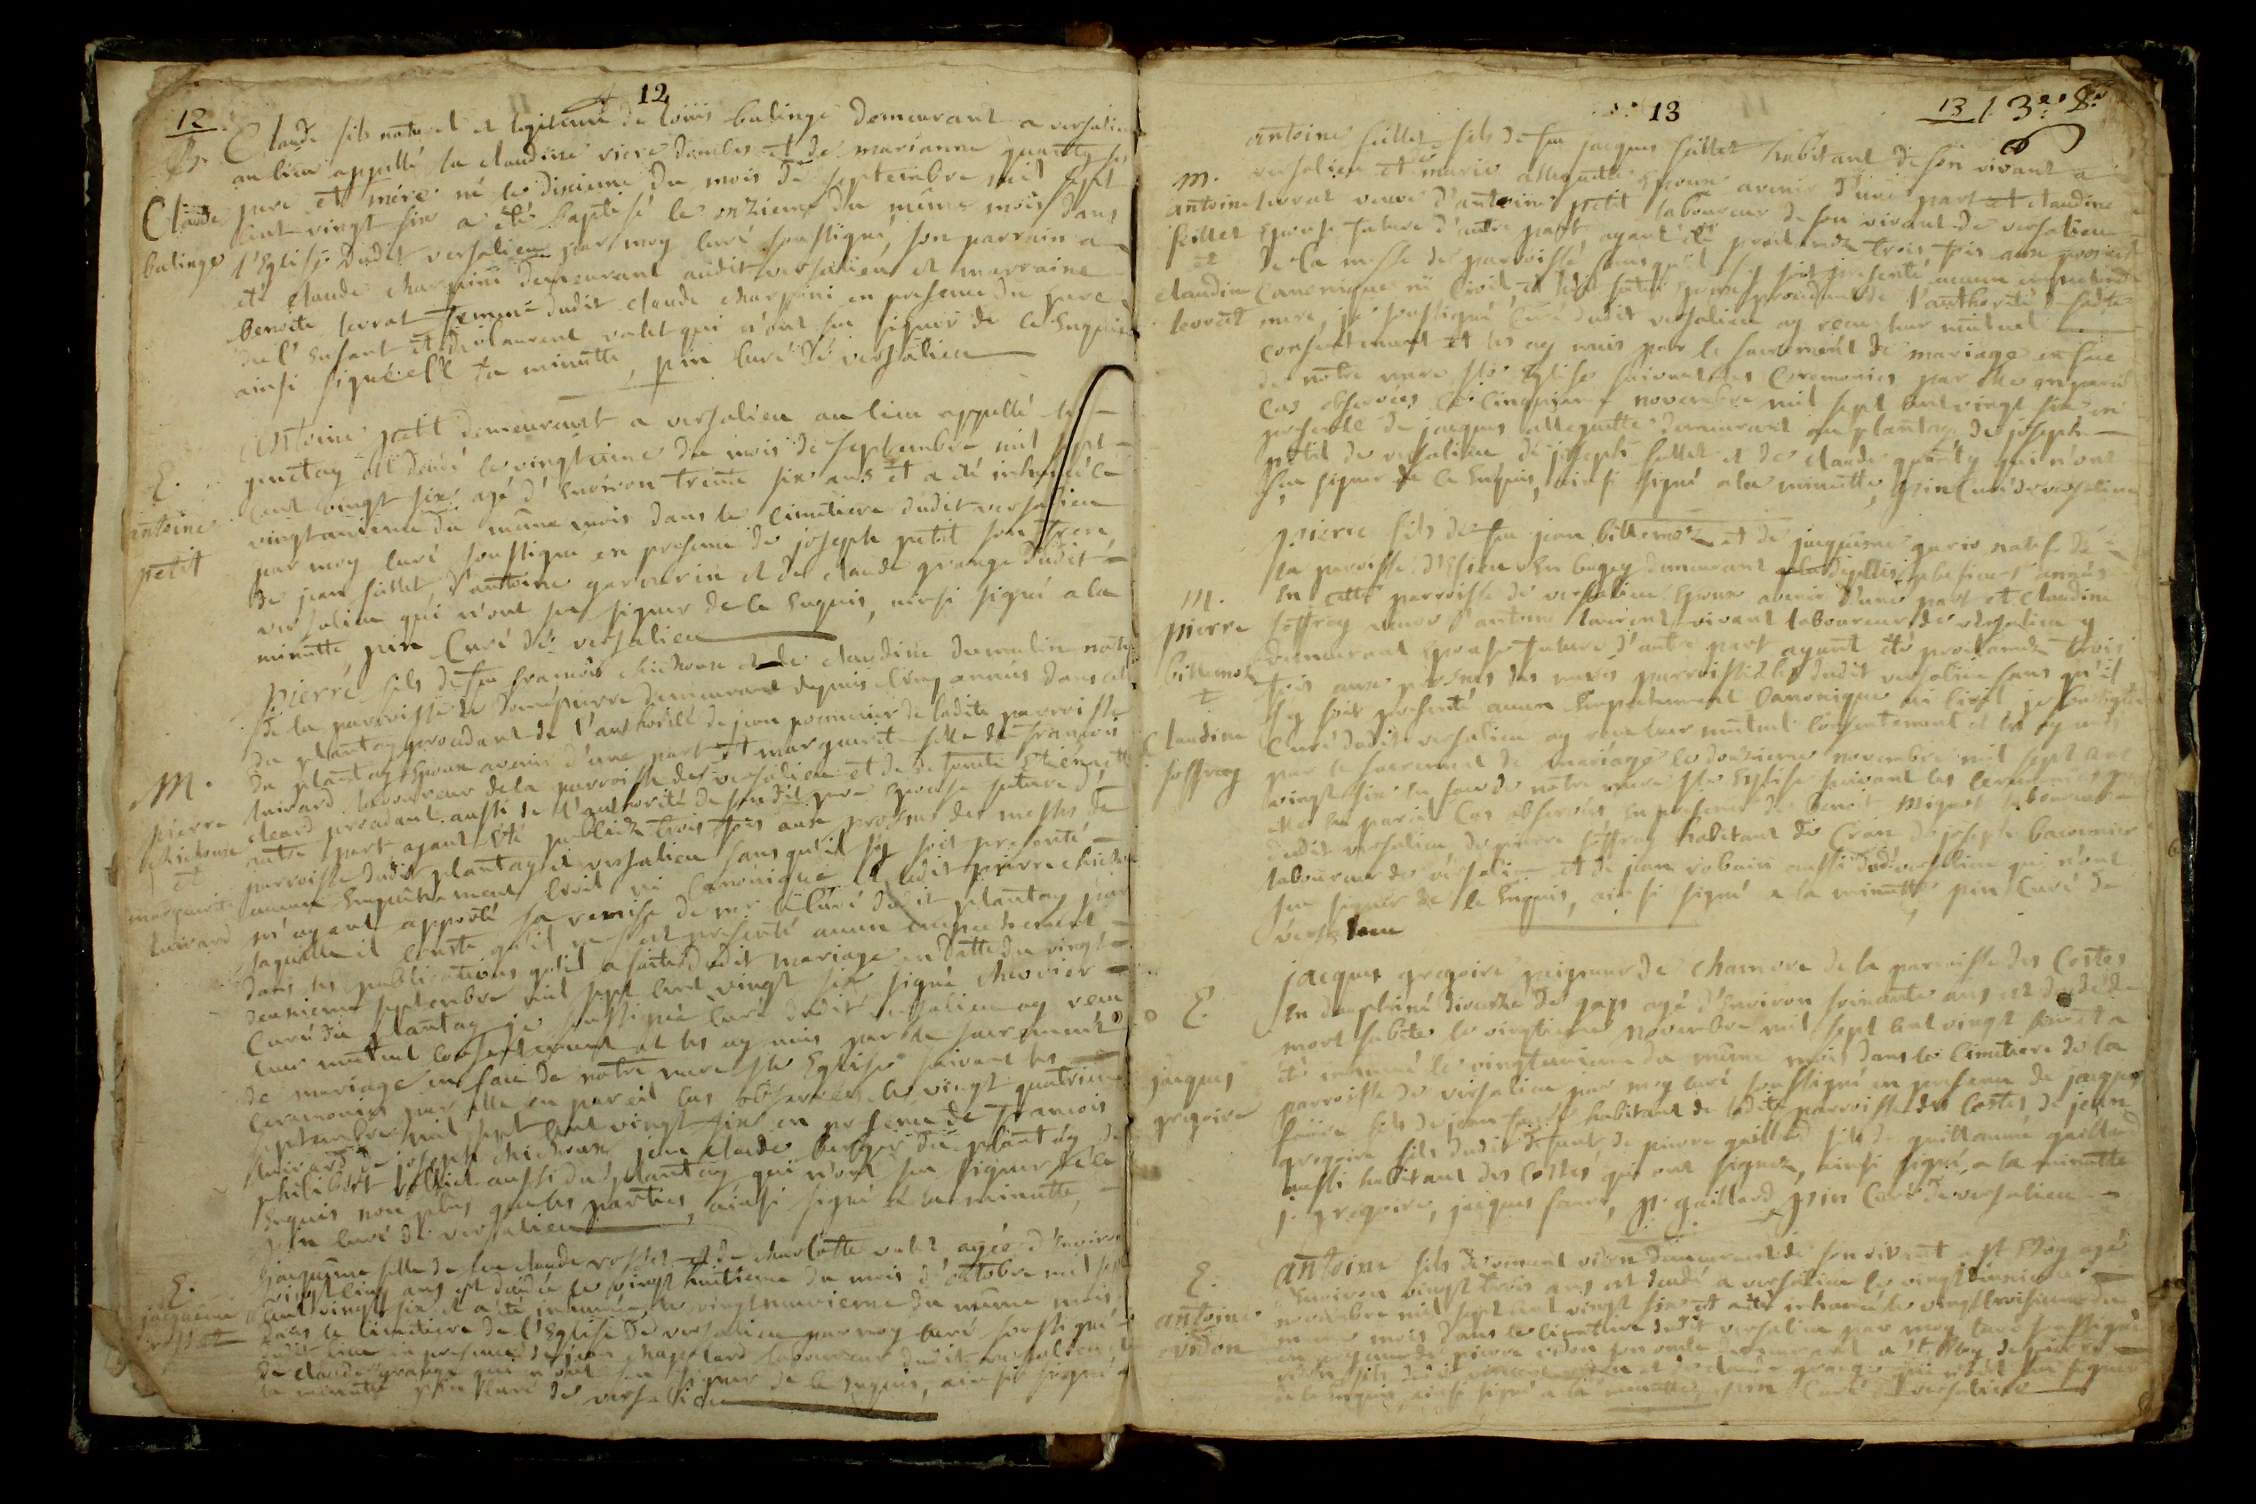 12
12
B.
Claude
balinge
Claude fils naturel et legitime de loüis balinge demeurant a versalieu
au lieu appellé la claudine viere dombes et de marianne
pere et mere né le dixieme du mois de septembre mil sept
cent vingt six a été baptisé le onzieme du même mois dans
l'Eglise dudit versalieu par moy curé soussigné, son parrain a
été claude charpini demeurant audit versalieu et marraine
benoite terrat femme dudit claude charpini en presence du pere
de l'enfant et de laurent valet qui n'ont su signer de ce enquis
ainsi signé a la minutte, pin curé de versalieu
E.
antoine
petit
antoine petit demeurant a versalieu au lieu appellé
est decedé le vingtieme du mois de septembre mil sept
cent vingt six agé d'environ trente six ans et a été inhumé le
vingtunieme du même mois dans le cimetiere dudit versalieu
par moy curé soussigné en presence de joseph petit son frere,
de jean fillet, d'antoine garnerin et de claude grange dudit
versalieu qui n'ont su signer de ce enquis, ainsi signé a la
minutte, pin Curé de versalieu
M.
pierre
chichoux
et
marguerite
tuivard
pierre fils de feu françois chichoux et de claudine dumolin natif
de la parroisse de dompierre demeurant depuis cinq années dans
du plantay procedant de l'authorité de jean pommier de ladite parroisse
du plantay Epoux avenir d'une part et marguerite fille de françois
tuivard laboureur de la parroisse de versalieu et de
cleard procedant aussi de l'authorité de sondit pere epouse future d'
autre part ayant été publiez trois fois aux prosnes des messes de
parroisse dudit plantay et versalieu sans qu'il s'y soit presenté
aucun Empechement civil ni canonique et ledit pierre chichoux
m'ayant apporté sa remise de mr le curé dudit plantay par
laquelle il conste qu'il ne s'est presenté aucun empechement
dans les publications qu'il a faites dudit mariage en datte du vingt
deuxieme septembre mil sept cent vingt six signé
Curé du plantay je soussigné Curé dudit versalieu ay receu
leur mutuel consentement et les ay unis par le sacrement
de mariage en face de notre mere ste Eglise suivant les
ceremonies par elle en pareil cas observées le vingt quatrieme
septembre mil sept cent vingt six en presence de françois
tuivard de joseph chichoux, jean claude berger du plantay de
philibert aussi du plantay qui n'ont su signer de ce
Enquis non plus que les parties, ainsi signé a la minutte,
pin curé de versalieu
E.
jaquemine
rosset
jaquemine fille de feu claude rosset et de charlotte valet, agée d'environ
vingt cinq ans est decedée le vingt huitieme du mois d'octobre mil sept
cent vingt six et a été inhumée le vingtneuvieme du même mois
dans le cimetiere de l'Eglise de versalieu par moy curé soussigné
en presence de jean chapelard laboureur dudit versalieu
de claude grange qui n'ont su signer de ce enquis, ainsi signé a
la minutte pin curé de versalieu
13
13 / 3e. 8.
M.
antoine
fillet
et
claudine
terrat
antoine fillet fils de feu jacques fillet habitant de son vivant a
versalieu et de marie allequatte Epoux avenir d'une part et claudine
terrat veuve d'antoine petit laboureur de son vivant de versalieu
Epouse future d'autre part ayant été proclamez trois fois aux prosnes
de la messe de parroisse sans qu'il s'y soit presenté aucun empechement
Canonique ni Civil et ledit futur époux procedant de l'authorité de sadite
mere, je soussigné Curé dudit versalieu ay receu leur mutuel
consentement et les ay unis par le sacrement de mariage en face
de notre mere ste Eglise suivant les Ceremonies par elle en pareil
Cas observées le cinquieme novembre mil sept cent vingt six en
presence de jacques allequatte demeurant au plantay, de joseph
petit de versalieu de joseph fillet et de claude qui n'ont
su signer de ce Enquis, ainsi signé a la minutte, pin Curé de versalieu
M.
pierre
billemoz
et
Claudine
joffray
pierre fils de feu jean billemoz et de jaquemine natif de
la parroisse en bugey demeurant années
en cette parroisse de versalieu Epoux avenir d'une part et Claudine
joffray veuve d'antoine laurent vivant laboureur de versalieu y
demeurant epouse future d'autre part ayant été proclamez trois
fois aux prosnes des messes parroissialles dudit versalieu sans qu'il
s'y soit presenté aucun Empechement Canonique ni Civil je soussigné
Curé dudit versalieu ay receu leur mutuel consentement et les ay unis
par le sacrement de mariage le douzieme novembre mil sept cent
vingt six en face de notre mere ste Eglise suivant les ceremonies par
elle en pareil Cas observées, en presence de benoit mignot laboureur
dudit versalieu de pierre joffray habitant de Cran de joseph
laboureur de versalieu et de jean robain aussi dudit versalieu qui n'ont
su signer de ce Enquis, ainsi signé a la minutte, pin Curé de
versalieu
E.
jacques
gregoire
jacques gregoire peigneur de chanvre de la parroisse des Costes
en dauphiné diocese de gaps agé d'environ soixante ans est decedé de
mort subite le vingtieme Novembre mil sept cent vingt six et a
été inhumé le vingtunieme du même mois dans le cimetiere de la
parroisse de versalieu par moy curé soussigné en presence de jacques
faure fils de jean faure habitant de ladite parroisse des Costes de jean
gregoire fils dudit defunt de pierre gaillard fils de guillaume gaillard
aussi habitant des Costes qui ont signez, ainsi signé a la minutte
j. gregoire, jacques faure, p. gaillard pin Curé de versalieu
E.
antoine
vidon
antoine fils de vincent vidon demeurant de son vivant a st Eloy agé
d'environ vingt trois ans est decedé a versalieu le vingt deuxieme
novembre mil sept cent vingt six et a été inhumé le vingt troisieme du
même mois dans le cimetiere dudit versalieu par moy curé soussigné
en presence de pierre vidon son oncle demeurant a st Eloy de pierre
vidon fils dudit vincent vidon et de claude grange qui n'ont su signer
de ce enquis, ainsi signé a la minutte, pin Curé de versalieu